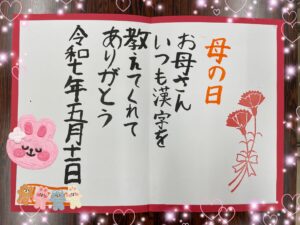 母の日
お母さん
いつも漢字を
教えてくれて
ありがとう
令和七年五月十一日